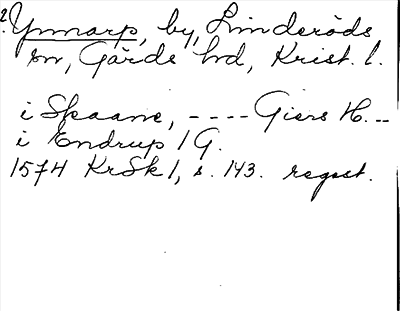 2. Ynnarp, by, Linderöds
sn, Gärds hd, Krist. l.
i Skaane, ---- Giers H. --
i Endrup 1 G.
1574 KrSk 1, s. 143. regest.